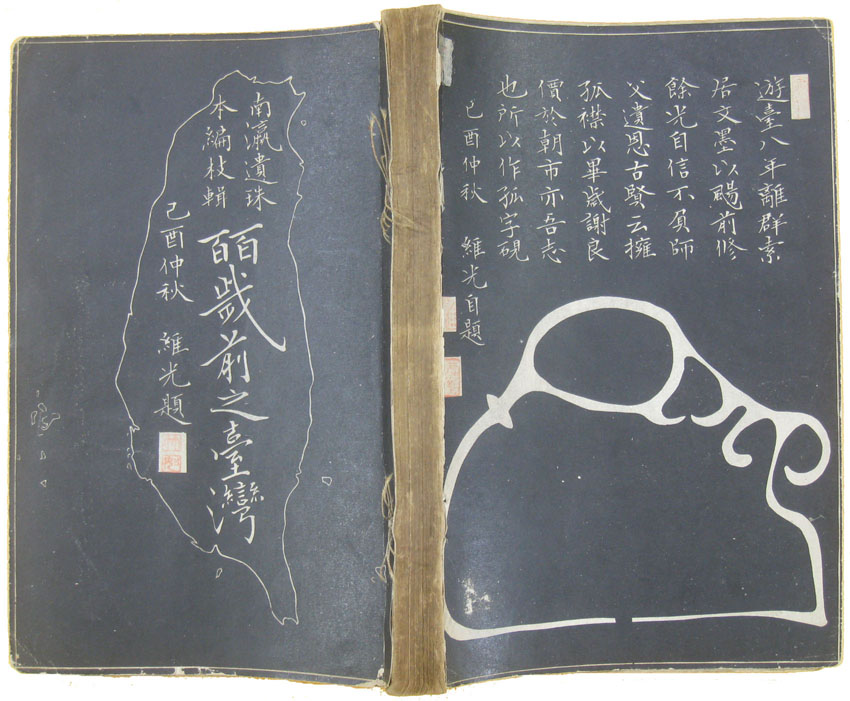 遊臺八年離群索
居文墨以賜前修
餘光自信不負師
父遺恩古賢云擁
孤襟以畢歲謝良
價於朝市亦吾志
也所以作孤字硯
己酉仲秋 維光自題
南瀛遺珠
本編枝輯
皕歲前之臺灣
己酉仲秋 維光題